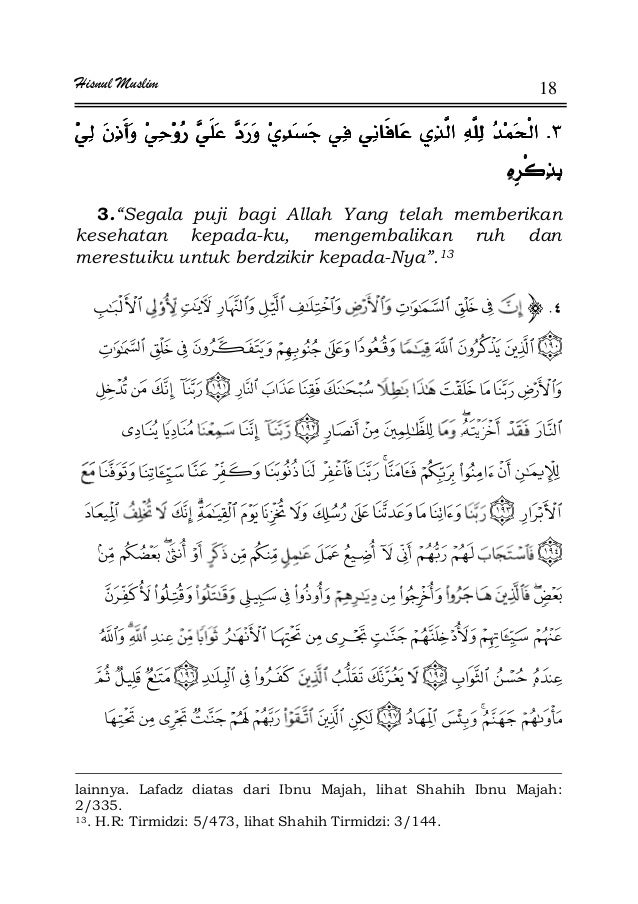 Hisnul Muslim 18
٣. الْحَمْدُ لِلَّهِ الَّذِي عَافَانِي فِي جَسَدِيْ وَرَدَّ عَلَيَّ رُوْحِيْ وَأَذِنَ لِيْ
بِذِكْرِهِ
3.“Segala puji bagi Allah Yang telah memberikan
kesehatan kepada-ku, mengembalikan ruh dan
merestuiku untuk berdzikir kepada-Nya”.13
٤. ﴿ إِنَّ فِى خَلْقِ ٱلسَّمَـٰوَٰتِ وَٱلْأَرْضِ وَٱخْتِلَـٰفِ ٱلَّيْلِ وَٱلنَّهَارِ لَـَٔايَـٰتٍ لِّأُو۟لِى ٱلْأَلْبَـٰبِ
﴿١٩٠﴾ ٱلَّذِينَ يَذْكُرُونَ ٱللَّهَ قِيَـٰمًا وَقُعُودًا وَعَلَىٰ جُنُوبِهِمْ وَيَتَفَكَّرُونَ فِى خَلْقِ ٱلسَّمَـٰوَٰتِ
وَٱلْأَرْضِ رَبَّنَا مَا خَلَقْتَ هَـٰذَا بَـٰطِلًا سُبْحَـٰنَكَ فَقِنَا عَذَابَ ٱلنَّارِ ﴿١٩١﴾ رَبَّنَآ إِنَّكَ مَن تُدْخِلِ
ٱلنَّارَ فَقَدْ أَخْزَيْتَهُۥ ۖ وَمَا لِلظَّـٰلِمِينَ مِنْ أَنصَارٍ ﴿١٩٢﴾ رَّبَّنَآ إِنَّنَا سَمِعْنَا مُنَادِيًا يُنَادِى
لِلْإِيمَـٰنِ أَنْ ءَامِنُوا۟ بِرَبِّكُمْ فَـَٔامَنَّا ۚ رَبَّنَا فَٱغْفِرْ لَنَا ذُنُوبَنَا وَكَفِّرْ عَنَّا سَيِّـَٔاتِنَا وَتَوَفَّنَا مَعَ
ٱلْأَبْرَارِ ﴿١٩٣﴾ رَبَّنَا وَءَاتِنَا مَا وَعَدتَّنَا عَلَىٰ رُسُلِكَ وَلَا تُخْزِنَا يَوْمَ ٱلْقِيَـٰمَةِ ۗ إِنَّكَ لَا تُخْلِفُ ٱلْمِيعَادَ
﴿١٩٤﴾ فَٱسْتَجَابَ لَهُمْ رَبُّهُمْ أَنِّى لَآ أُضِيعُ عَمَلَ عَـٰمِلٍ مِّنكُم مِّن ذَكَرٍ أَوْ أُنثَىٰ ۖ بَعْضُكُم مِّنۢ
بَعْضٍ ۖ فَٱلَّذِينَ هَاجَرُوا۟ وَأُخْرِجُوا۟ مِن دِيَـٰرِهِمْ وَأُوذُوا۟ فِى سَبِيلِى وَقَـٰتَلُوا۟ وَقُتِلُوا۟ لَأُكَفِّرَنَّ
عَنْهُمْ سَيِّـَٔاتِهِمْ وَلَأُدْخِلَنَّهُمْ جَنَّـٰتٍ تَجْرِى مِن تَحْتِهَا ٱلْأَنْهَـٰرُ ثَوَابًا مِّنْ عِندِ ٱللَّهِ ۗ وَٱللَّهُ
عِندَهُۥ حُسْنُ ٱلثَّوَابِ ﴿١٩٥﴾ لَا يَغُرَّنَّكَ تَقَلُّبُ ٱلَّذِينَ كَفَرُوا۟ فِى ٱلْبِلَـٰدِ ﴿١٩٦﴾ مَتَـٰعٌ قَلِيلٌ ثُمَّ
مَأْوَىٰهُمْ جَهَنَّمُ ۚ وَبِئْسَ ٱلْمِهَادُ ﴿١٩٧﴾ لَـٰكِنِ ٱلَّذِينَ ٱتَّقَوْا۟ رَبَّهُمْ لَهُمْ جَنَّـٰتٌ تَجْرِى مِن تَحْتِهَا
lainnya. Lafadz diatas dari Ibnu Majah, lihat Shahih Ibnu Majah:
2/335.
13. H.R: Tirmidzi: 5/473, lihat Shahih Tirmidzi: 3/144.